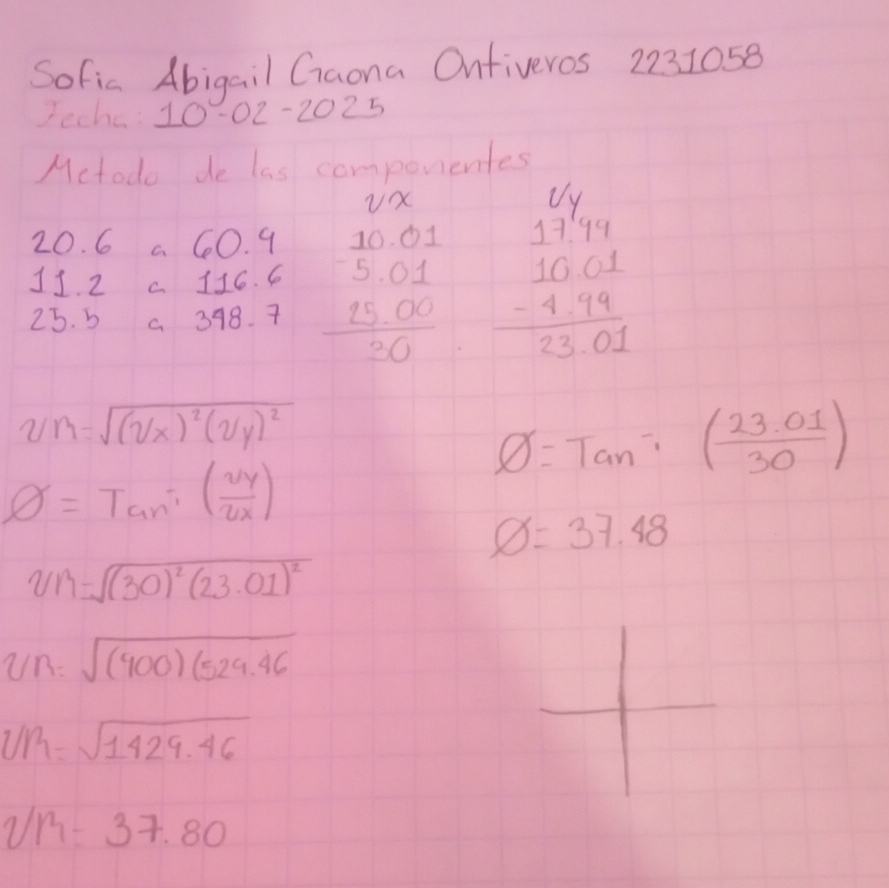 Sofia Abigail Gaona Ontiveros 2231058
Fecha: 10-02-2025
Metodo de las componentes
vx vy
20.6 a 60.9 10.01 17.99
11.2 a 116.6 -5.01 10.01
25.5 a 348.7 25.00 -4.99
30 23.01
VR=√(Vx)²(Vy)²
Ø = Tan⁻¹ (vy/vx)
VR=√(30)²(23.01)²
VR=√(900)(529.46
VR=√1429.46
VR= 37.80
Ø= Tan⁻¹ (23.01/30)
Ø= 37.48